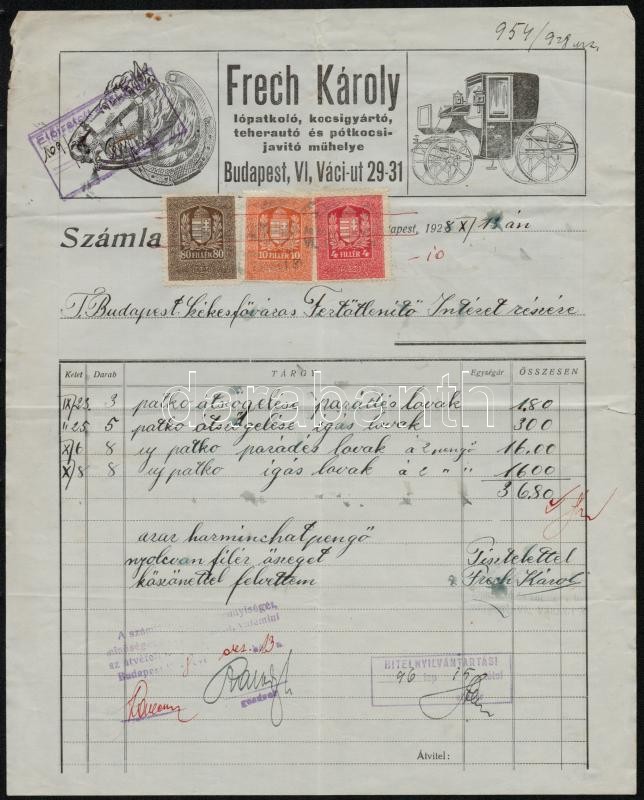 954/928
Frech Károly
lópatkoló, kocsigyártó,
teherautó és pótkocsi-
javitó műhelye
Budapest, VI, Váci-ut 29-31
109
80 FILLÉR 80
10 FILLÉR 10
4 FILLÉR 4
Számla
apest, 1928 X/ 13 án
-10
T. Budapest Székesfőváros Fertőtlenitő Intézet részére
Kelet Darab TÁRGY Egységár ÖSSZESEN
IX/23. 3 patko átszögelése parádés lovak 1.80
" 25. 5 patko átszögelése igás lovak 300
X/6 8 uj patko parádés lovak á 2 pengő 16.00
X/8 8 uj patko igás lovak á 2 " " 1600
36.80
azaz harminchatpengő
nyolcvan filér öszeget Tisztelettel
köszönettel felvettem Frech Károly
A számla
Budapest
okt. 13
HITELNYILVÁNTARTÁSI
96 lap 15
Átvitel:
darabanth